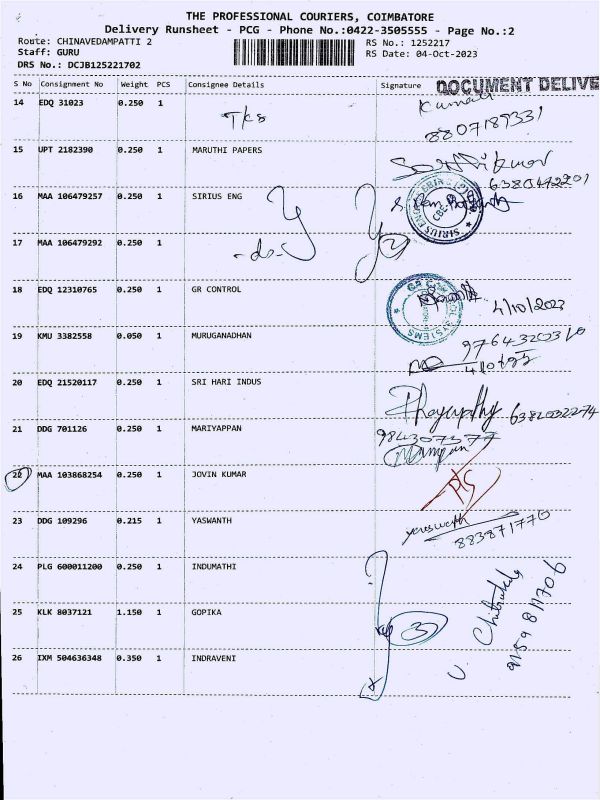 THE PROFESSIONAL COURIERS, COIMBATORE
Delivery Runsheet - PCG - Phone No.:0422-3505555 - Page No.:2
Route: CHINAVEDAMPATTI 2
RS No.: 1252217
Staff: GURU
RS Date: 04-Oct-2023
DRS No.: DCJB125221702
S No Consignment No Weight PCS Consignee Details Signature
DOCUMENT DELIVE
14 EDQ 31023 0.250 1
8807189331
15 UPT 2182390 0.250 1 MARUTHI PAPERS
16 MAA 106479257 0.250 1 SIRIUS ENG
17 MAA 106479292 0.250 1
-do-
2
18 EDQ 12310765 0.250 1 GR CONTROL
4/10/2023
19 KMU 3382558 0.050 1 MURUGANADHAN
20 EDQ 21520117 0.250 1 SRI HARI INDUS
21 DDG 701126 0.250 1 MARIYAPPAN
22 MAA 103868254 0.250 1 JOVIN KUMAR
23 DDG 109296 0.215 1 YASWANTH
24 PLG 600011200 0.250 1 INDUMATHI
25 KLK 8037121 1.150 1 GOPIKA
3
26 IXM 504636348 0.350 1 INDRAVENI